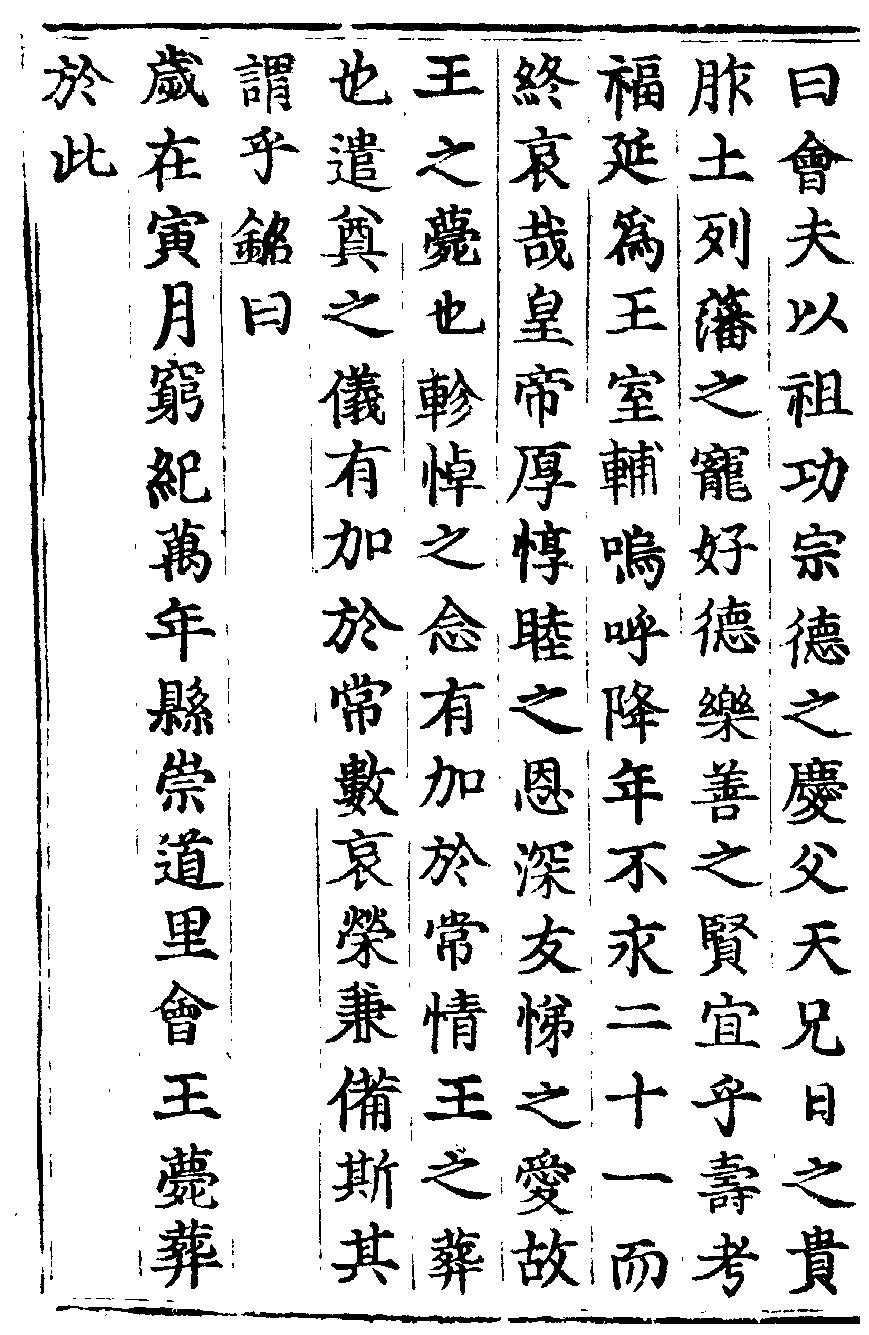 曰會夫以祖功宗德之慶父天兄日之貴
胙土列藩之寵好德樂善之賢宜乎壽考
福延爲王室輔嗚呼降年不永二十一而
終哀哉皇帝厚惇睦之恩深友悌之愛故
王之薨也軫悼之念有加於常情王之葬
也遣奠之儀有加於常數哀榮兼備斯其
謂乎銘曰
歲在寅月窮紀萬年縣崇道里會王薨葬
於此